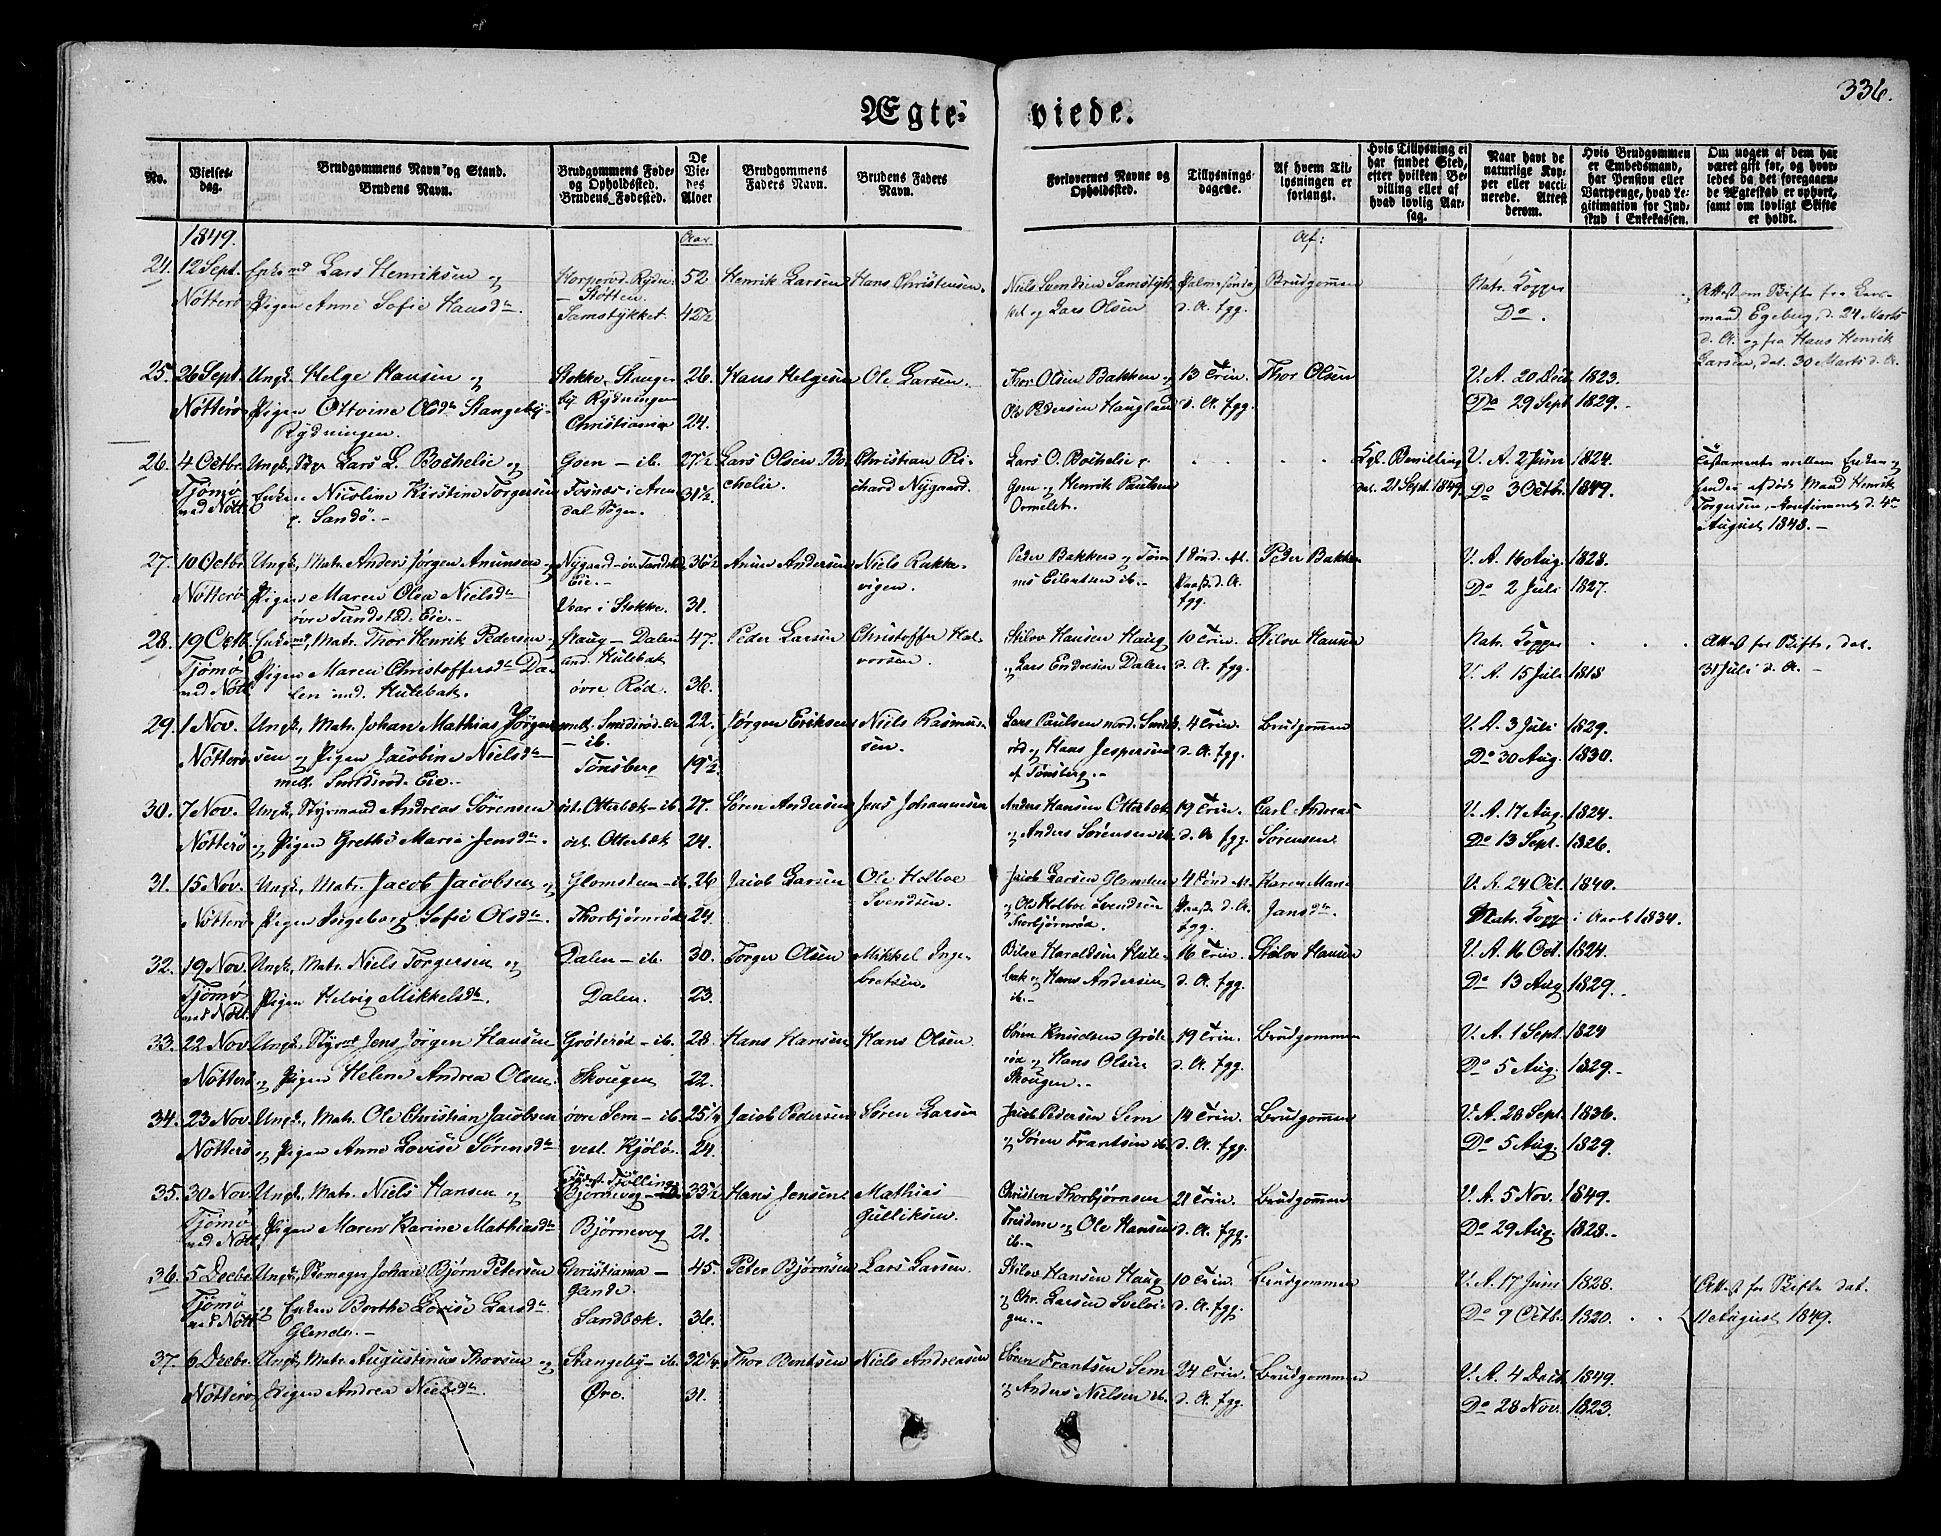 336.
Ægte-viede.
No.
Vielses-dag.
Brudgommens Navn og Stand.
Brudens Navn.
Brudgommens Føde- og Opholdssted.
Brudens Fødested.
De Viedes Alder
Brudgommens Faders Navn.
Brudens Faders Navn.
Forlovernes Navne og Opholdssted.
Tillysnings-dagene.
Af hvem Tillysningen er forlangt.
Hvis Tillysning ei har fundet Sted, efter hvilken Bevilling eller af hvad lovlig Aarsag.
Naar havt de naturlige Kopper eller vaccinerede. Attest derom.
Hvis Brudgommen er Embedsmand, har Pension eller Vartpenge, hvad Legitimation for Indskud i Enkekassen.
Om nogen af dem har været gift før, og hvorledes da det foregaaende Ægteskab er ophørt, samt om lovligt Skifte er holdt.
1849. Aar Af:
24. 12 Sept. Enkemd Lars Henriksen og 52 Henrik Larsen Hans Christensen. Brudgommen Nat. Kopper
Nötterö Pigen Anne Sofie Hansdtr. Samstykket 42½ og Lars Olsen d. A. fgg. Do.
25. 26 Sept. Ungk. Helge Hansen og Stokke 26. Hans Helgesen Ole Larsen. Thor Olsen Bakken og 13 Trin. Thor Olsen V. A. 20 Dec. 1823.
Nötterö Pigen Ottvine Olsdtr. Stangeby- Rydningen Ole Pedersen Haugland d. A. fgg. Do 29 Sept 1829.
Rydningen. Christiania 24.
26. 4 Octbr. Ungk. Lars L. Bochelie og Goen - ib. 27½ Lars Olsen Bochelie. Christian Richard Nygaard. Lars O. Bochelie Kgl. Bevilling V. A. 2 Juni 1824.
Tjömö Enken Nicoline Kirstine Torgersen 31½ og Henrik Paulsen dat. 21 Sept. 1849. Do 3 Octbr. 1849.
med Nött. Sandö. Ormelet. August 1848.
27. 10 Octbr. Ungk. Matr. Anders Jørgen Anunsen og Nygaard 36½ Anun Andersen Niels Rakkevigen. Peder Bakken Peder Bakken V. A. 16 Aug. 1828.
Nötterö Pigen Maren Olea Nielsdtr. Eie. d. A. fgg. Do 2 Juli 1827.
Vaar i Stokke. 31.
28. 19 Octb. Enkemd, Matr. Thor Henrik Pedersen Haug - Dalen 47. Peder Larsen Christoffer Halvorsen. Stilov Hansen Haug 10 Trin. Stilov Hansen Nat. Kopper Attest fra Skifter, dat.
Tjömö Pigen Maren Christoffersdtr. Dalen und. Hulebak. og Lars Endresen Dalen d. A. fgg. V. A. 15 Juli 1818 31 Juli d. A.
med Nött. øvre Rød. 36.
29. 1 Nov. Ungk. Matr. Johan Mathias Jörgensen mell. Smidsrød Eie 22. Jørgen Eriksen Niels Rasmussen. Lars Paulsen nord. Smidsrød 4 Trin. Brudgommen V. A. 3 Juli 1829.
Nötterö og Pigen Jacobine Nielsdtr - ib. og Hans Jespersen d. A. fgg. Do 30 Aug. 1830.
mell. Smidsrød. Eie. Tönsberg 19½ af Tønsberg.
30. 7 Nov. Ungk. Styrmand Andreas Sörensen öst. Otterbæk - ib. 27. Sören Andersen Jens Johannesen Anders Hansen Otterbæk 19 Trin. Carl Andreas V. A. 17 Aug. 1824.
Nötterö og Pigen Grethe Marie Jensdtr. öst. Otterbæk 24. og Anders Sørensen ib. d. A fgg. Sørensen. Do 13 Sept. 1826.
31. 15 Nov. Ungk. Matr. Jacob Jacobsen og Glomsten - ib. 26 Jacob Larsen Ole Holboe Svendsen. Jacob Larsen Glomsten Karen Marie V. A. 24 Oct. 1840.
Nötterö Pigen Ingeborg Sofie Olsdtr. Thorbjørnrød 24. og Ole Holboe Svendsen Thorbjörnrød Jansdtr. Nat. Kopper i Aaret 1834.
32. 19 Nov. Ungk. Matr. Niels Torgersen og Dalen - ib. 30. Torger Olsen Mikkel Ingebretsen. Haraldsen Hulebak 16 Trin. Stilov Hansen V. A. 16 Oct. 1824.
Tjömö Pigen Helvig Mikkelsdtr. Dalen. 23. og Hans Andersen ib. d. A. fgg. Do 13 Aug 1829.
med Nött.
33. 22 Nov. Ungk. Styrmd Jens Jörgen Hansen Gröterød - ib. 28. Hans Hansen Hans Olsen. Sören Knudsen Gröterød 19 Trin. Brudgommen V. A. 1 Sept. 1824
Nötterö og Pigen Helene Andrea Olsen. Skougen 22. og Hans Olsen Skougen. d. A. fgg. Do 5 Aug. 1829.
34. 23 Nov. Ungk. Matr. Ole Christian Jacobsen øvre Sem - ib. 25¼ Jacob Pedersen Sören Larsen Jacob Pedersen Sem 14 Trin. Brudgommen V. A. 28 Sept. 1836.
Nötterö og Pigen Anne Lovise Sörensdtr vest. Kjölö. 24. og Sören Frantsen ib. d. A. fgg. Do 5 Aug. 1829.
35. 30 Nov. Ungk. Matr. Niels Hansen og Bjørnevog 33½ Hans Jensen Mathias Gulliksen. Christen Thorbjørnsen 21 Trin. Brudgommen V. A. 5 Nov. 1849.
Tjömö Pigen Maren Karine Mathiasdtr Bjørnevog 21. og Ole Hansen ib. d. A. fgg. Do 29 Aug. 1828.
med Nött.
36. 5 Decbr. Ungk. Johan Björn Petersen Christiania - Glende. 45. Peter Bjørnsen Lars Larsen. Stilov Hansen Haug 10 Trin. Brudgommen V. A. 17 Juni 1828. Attest fra Skifte dat.
Tjömö og Enken Berthe Lovise Larsdtr Sandbæk. 36. og Chr. Larsen d. A. fgg. Do 9 Octb. 1820. 11 August 1849.
med Nött. Glende.
37. 6 Decbr. Ungk. Matr. Augustinus Thorsen og Stangeby - ib. 32¼ Thor Bentsen Niels Andreasen Sören Frantsen Sem 24 Trin. Brudgommen V. A. 4 Decb. 1849.
Nötterö Pigen Andrea Nielsdtr. Øre. 31. og Anders Nielsen ib. d. A. fgg. Do 28 Nov. 1823.